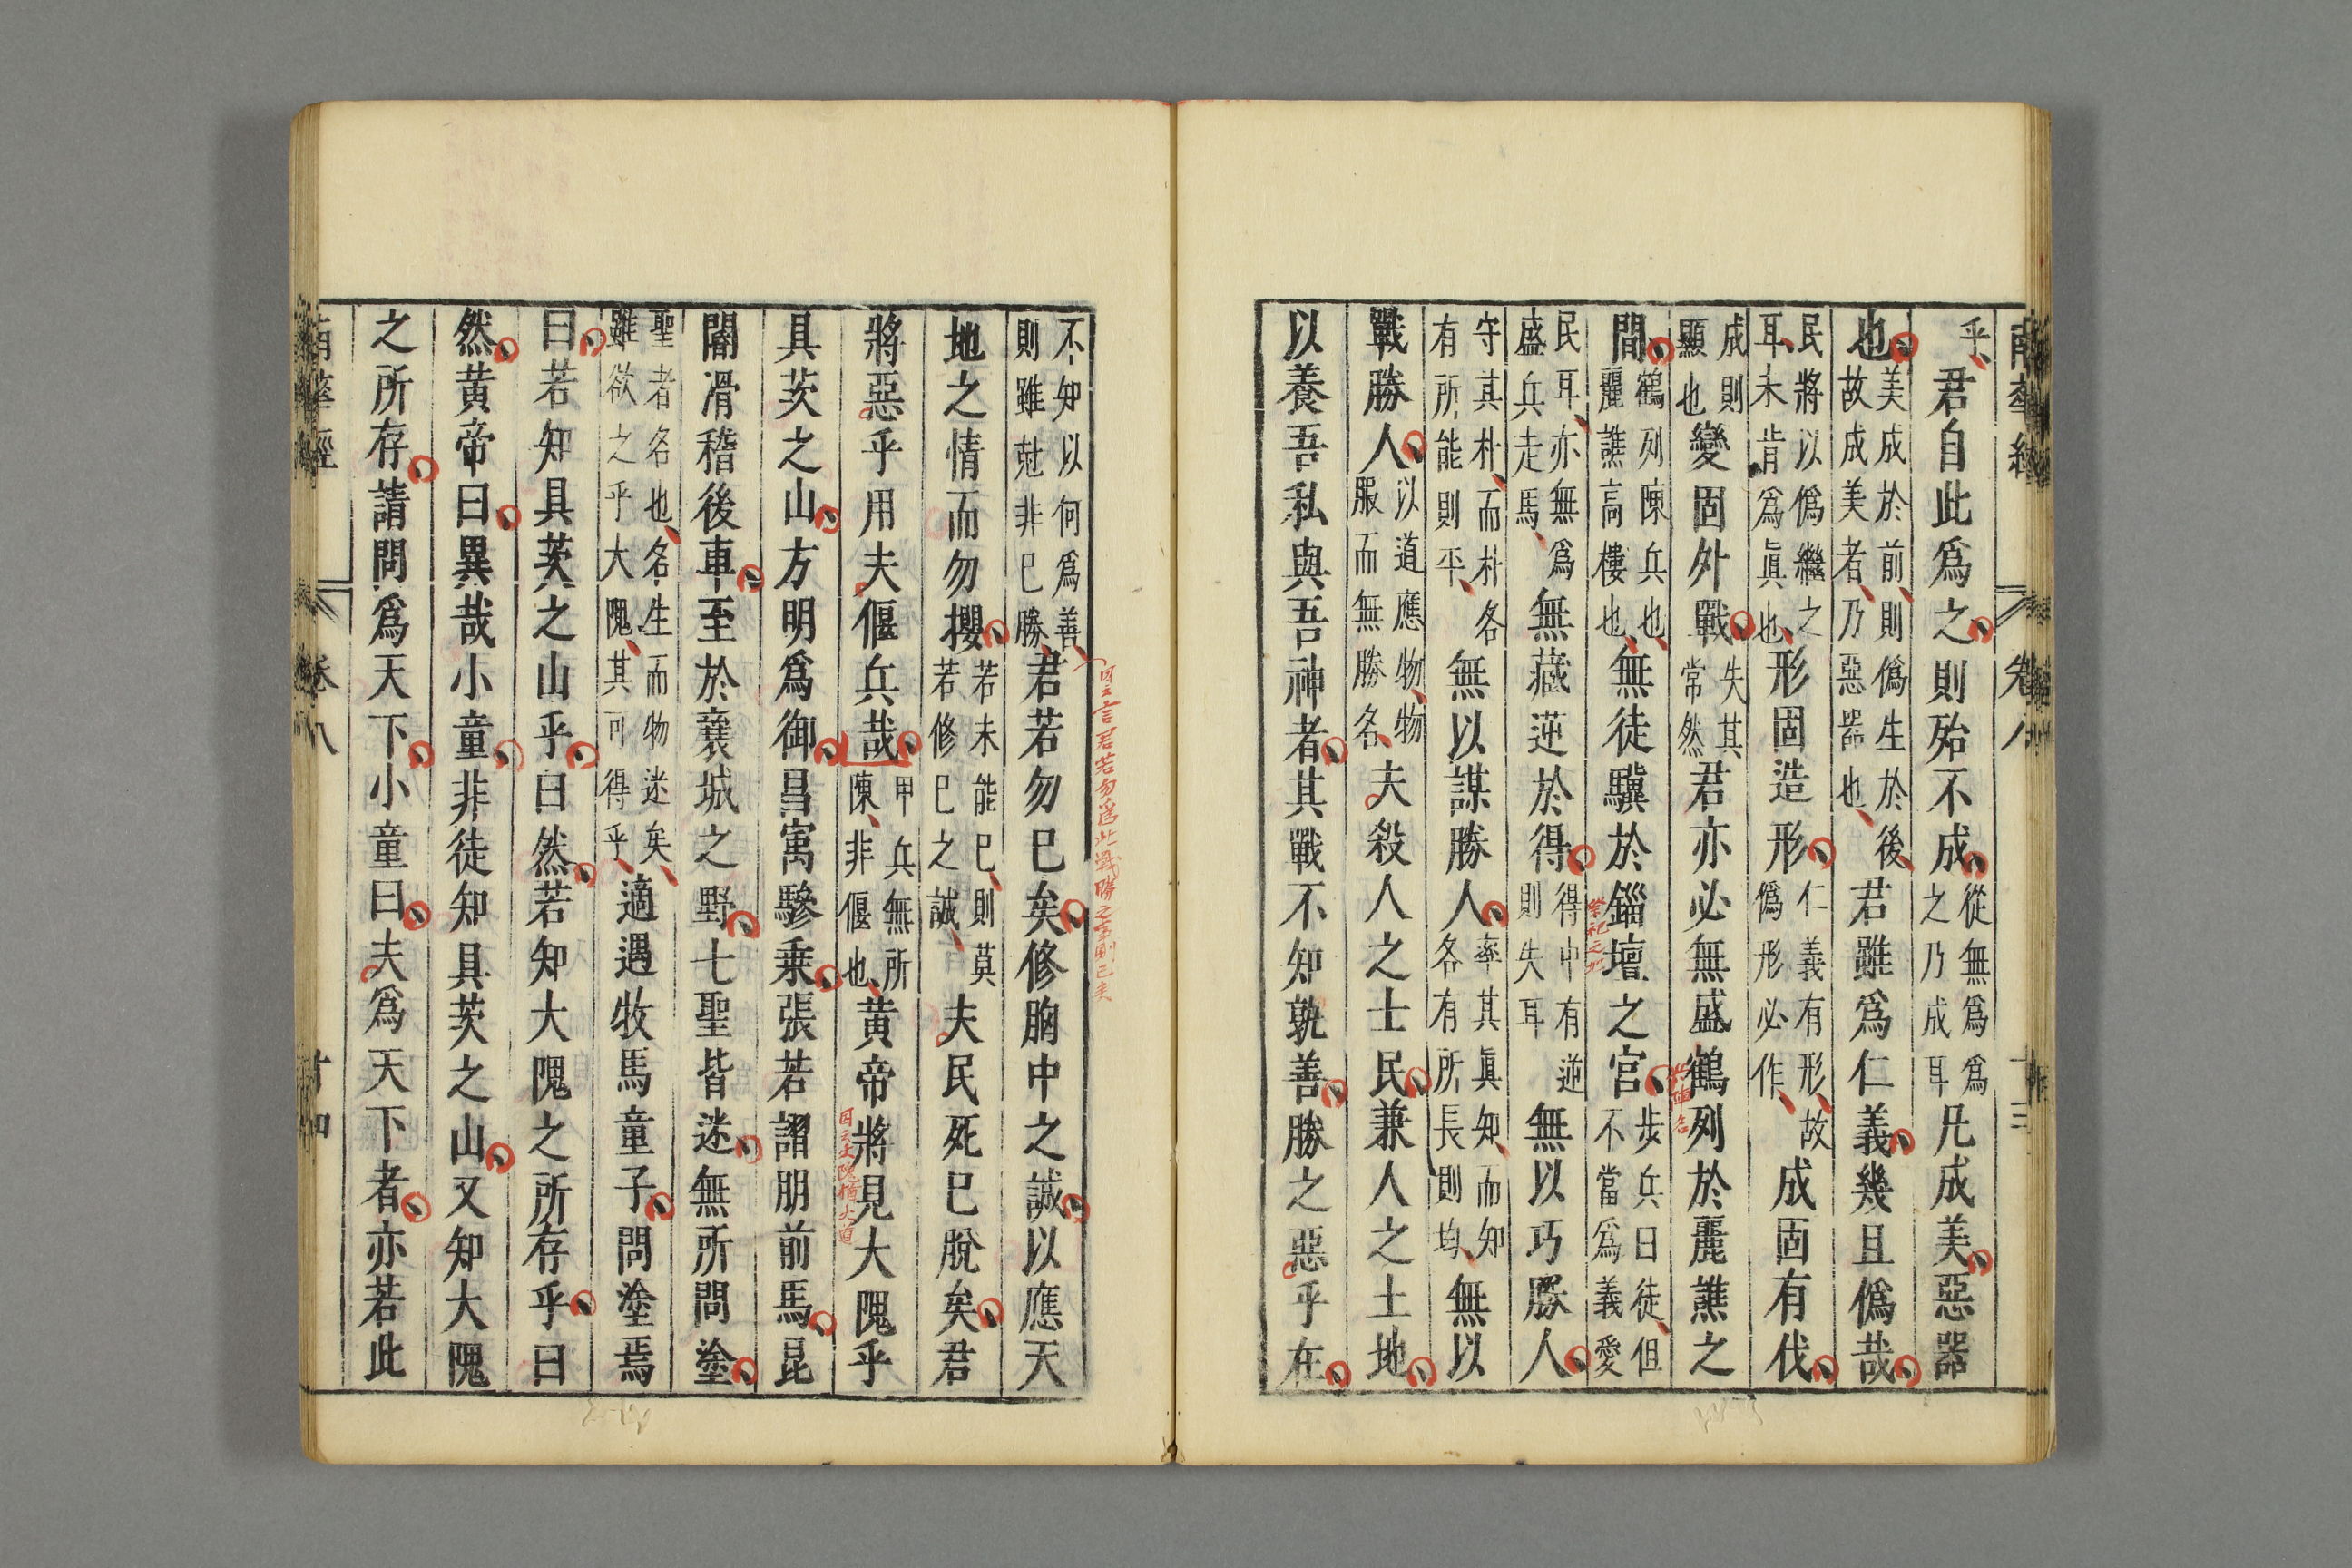 南華經 卷八 十三
乎君自此爲之則殆不成從無爲爲之乃成耳凡成美惡器
也美成於前則僞生於後故成美者乃惡器也君雖爲仁義幾且僞哉
民將以僞繼之耳未肯爲眞也形固造形仁義有形故僞形必作成固有伐
成則顯也變固外戰失其常然君亦必無盛鶴列於麗譙之
間鶴列陳兵也麗譙高樓也無徒驥於錙壇之宮步兵曰徒但不當爲義愛
民耳亦無爲盛兵走馬無藏逆於得得中有逆則失耳無以巧勝人
守其朴而朴各有所能則平無以謀勝人率其眞知而知各有所長則均無以
戰勝人以道應物物服而無勝名夫殺人之士民兼人之土地
以養吾私與吾神者其戰不知孰善勝之惡乎在
不知以何爲善則雖尅非已勝君若勿已矣修胸中之誠以應天
地之情而勿攖若未能已則莫若修已之誠夫民死已脫矣君
將惡乎用夫偃兵哉甲兵無所陳非偃也黃帝將見大隗乎
具茨之山方明爲御昌寓驂乗張若謵朋前馬昆
閽滑稽後車至於襄城之野七聖皆迷無所問塗
聖者名也名生而物迷矣雖欲之乎大隗其可得乎適遇牧馬童子問塗焉
曰若知具茨之山乎曰然若知大隗之所存乎曰
然黃帝曰異哉小童非徒知具茨之山又知大隗
之所存請問爲天下小童曰夫爲天下者亦若此
南華經 卷八 十四